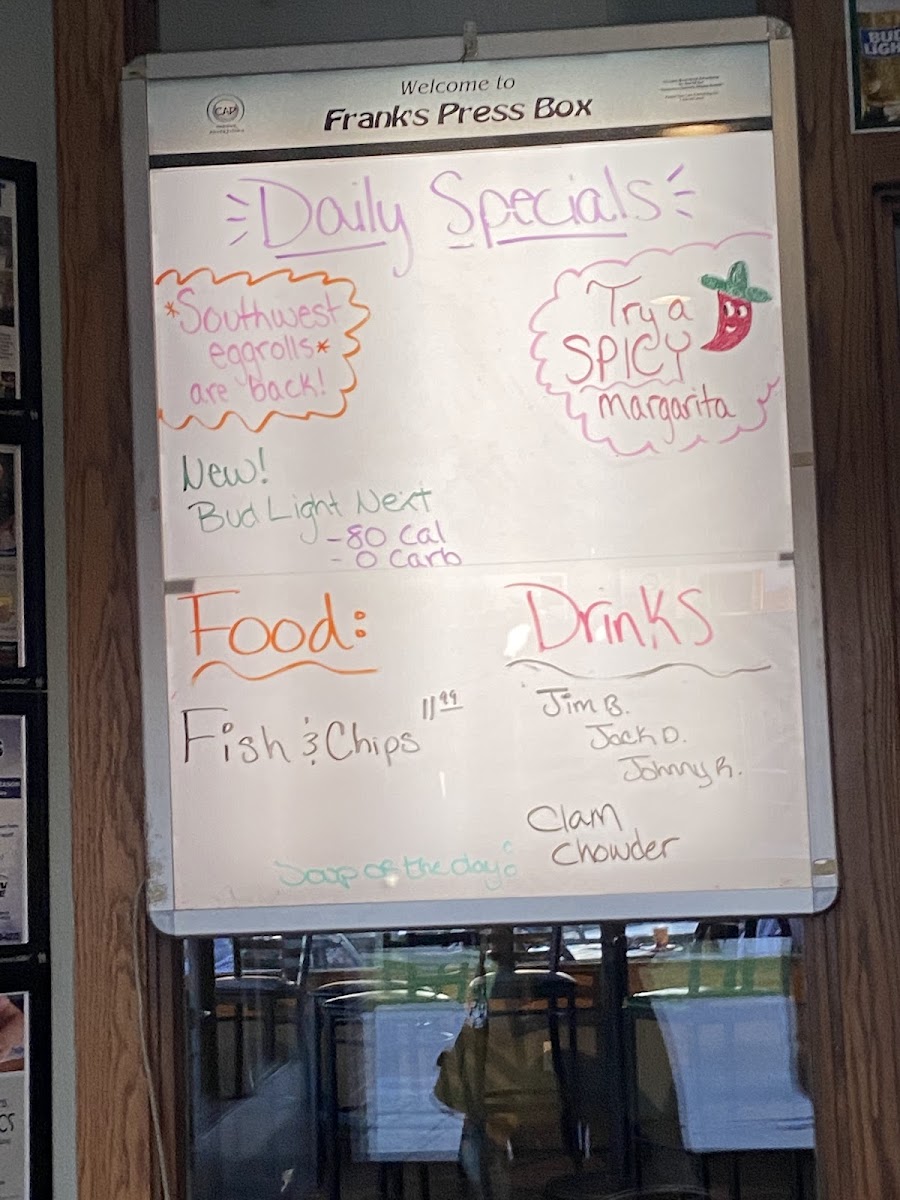 CAP
Welcome to
Frank's Press Box
BUD
LIGHT
Daily Specials
*Southwest
eggrolls*
are back!
Try a
SPICY
margarita
New!
Bud Light Next
-80 Cal
- 0 Carb
Food:
Fish & Chips 11.99
Drinks
Jim B.
Jack D.
Johnny R.
Soup of the day:
Clam
Chowder